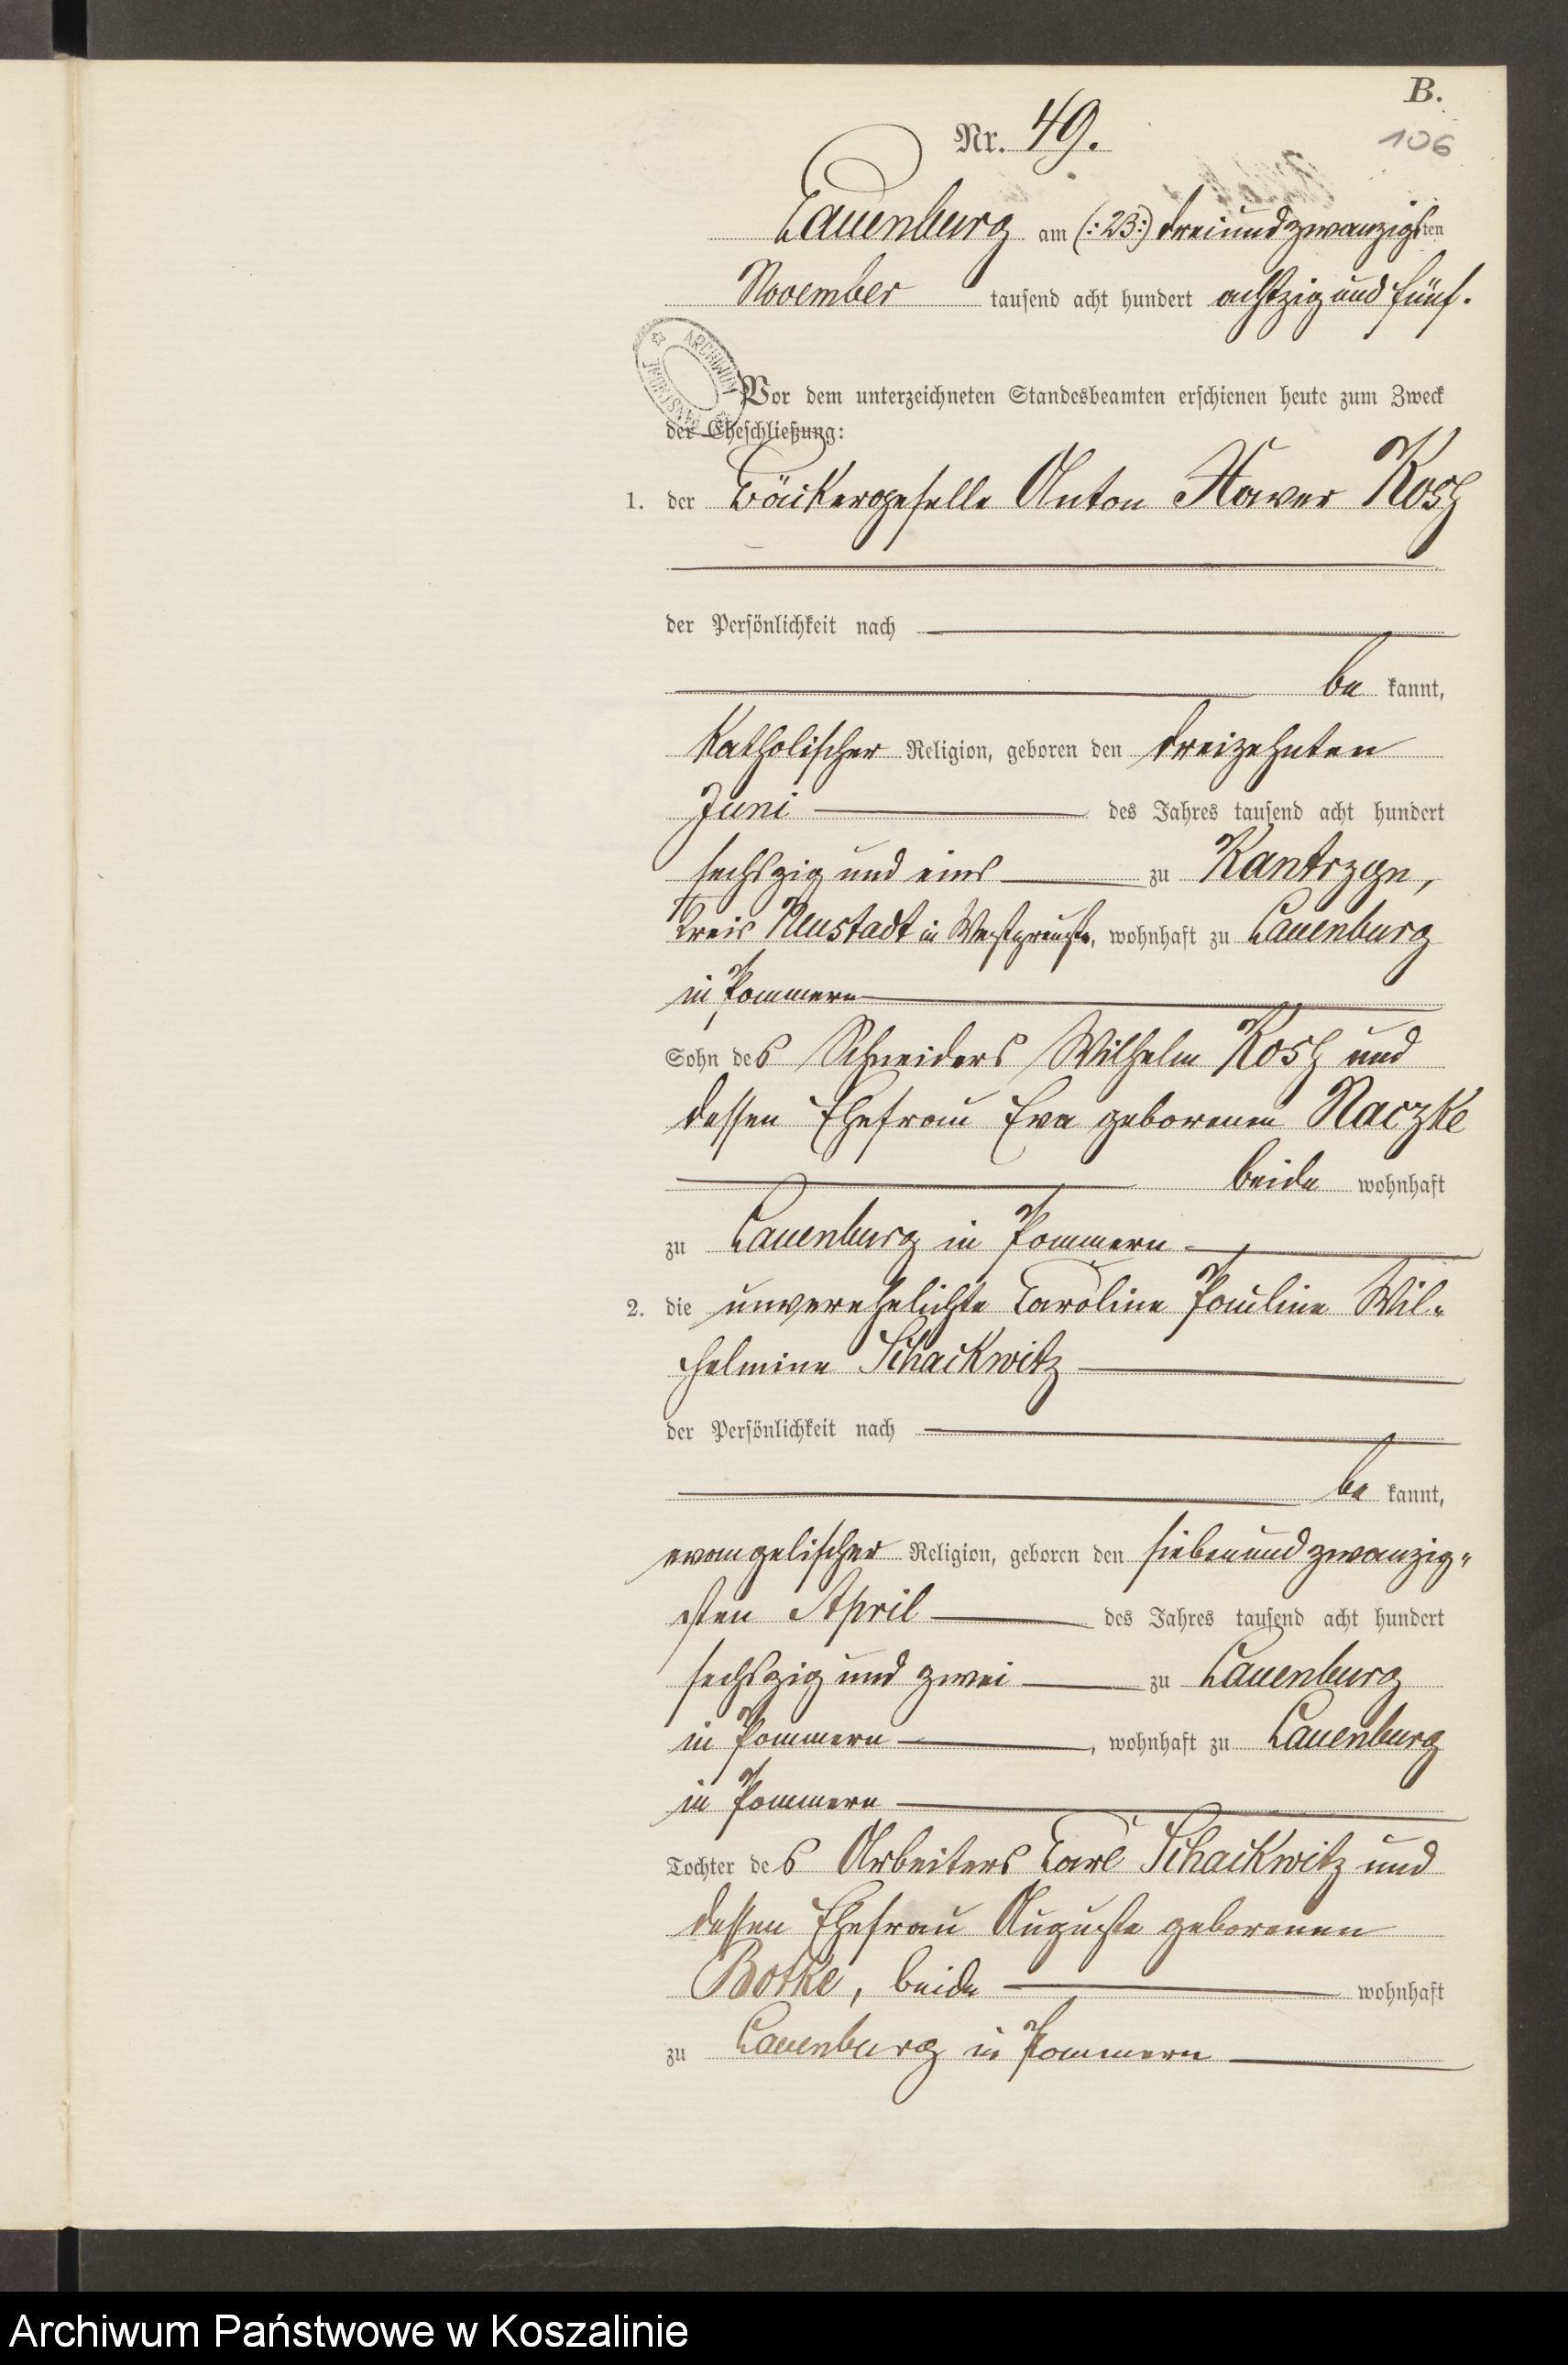 B.
106
Nr. 49.
Lauenburg am (:23:) dreiundzwanzigsten
November tausend acht hundert achtzig und fünf.
Vor dem unterzeichneten Standesbeamten erschienen heute zum Zweck
der Eheschließung:
1. der Bäckergeselle Anton Xaver Kosh
der Persönlichkeit nach
be kannt,
katholischer Religion, geboren den dreizehnten
Juni des Jahres tausend acht hundert
sechszig und eins zu
Kreis Neustadt in Westpreußen, wohnhaft zu Lauenburg
in Pommern
Sohn des Schneiders Wilhelm Kosh und
dessen Ehefrau Eva geborenen Naczke
beide wohnhaft
zu Lauenburg in Pommern
2. die unverehelichte Caroline Pauline Wil-
helmine Schackwitz
der Persönlichkeit nach
be kannt,
evangelischer Religion, geboren den siebenundzwanzig-
sten April des Jahres tausend acht hundert
sechszig und zwei zu Lauenburg
in Pommern, wohnhaft zu Lauenburg
in Pommern
Tochter des Arbeiters Carl Schackwitz und
dessen Ehefrau Auguste geborenen
Botke, beide wohnhaft
zu Lauenburg in Pommern
Archiwum Państwowe w Koszalinie